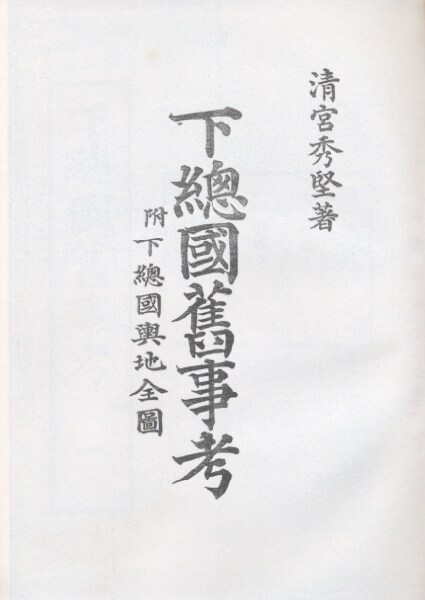 清宮秀堅著
下總國舊事考
附下總國輿地全圖